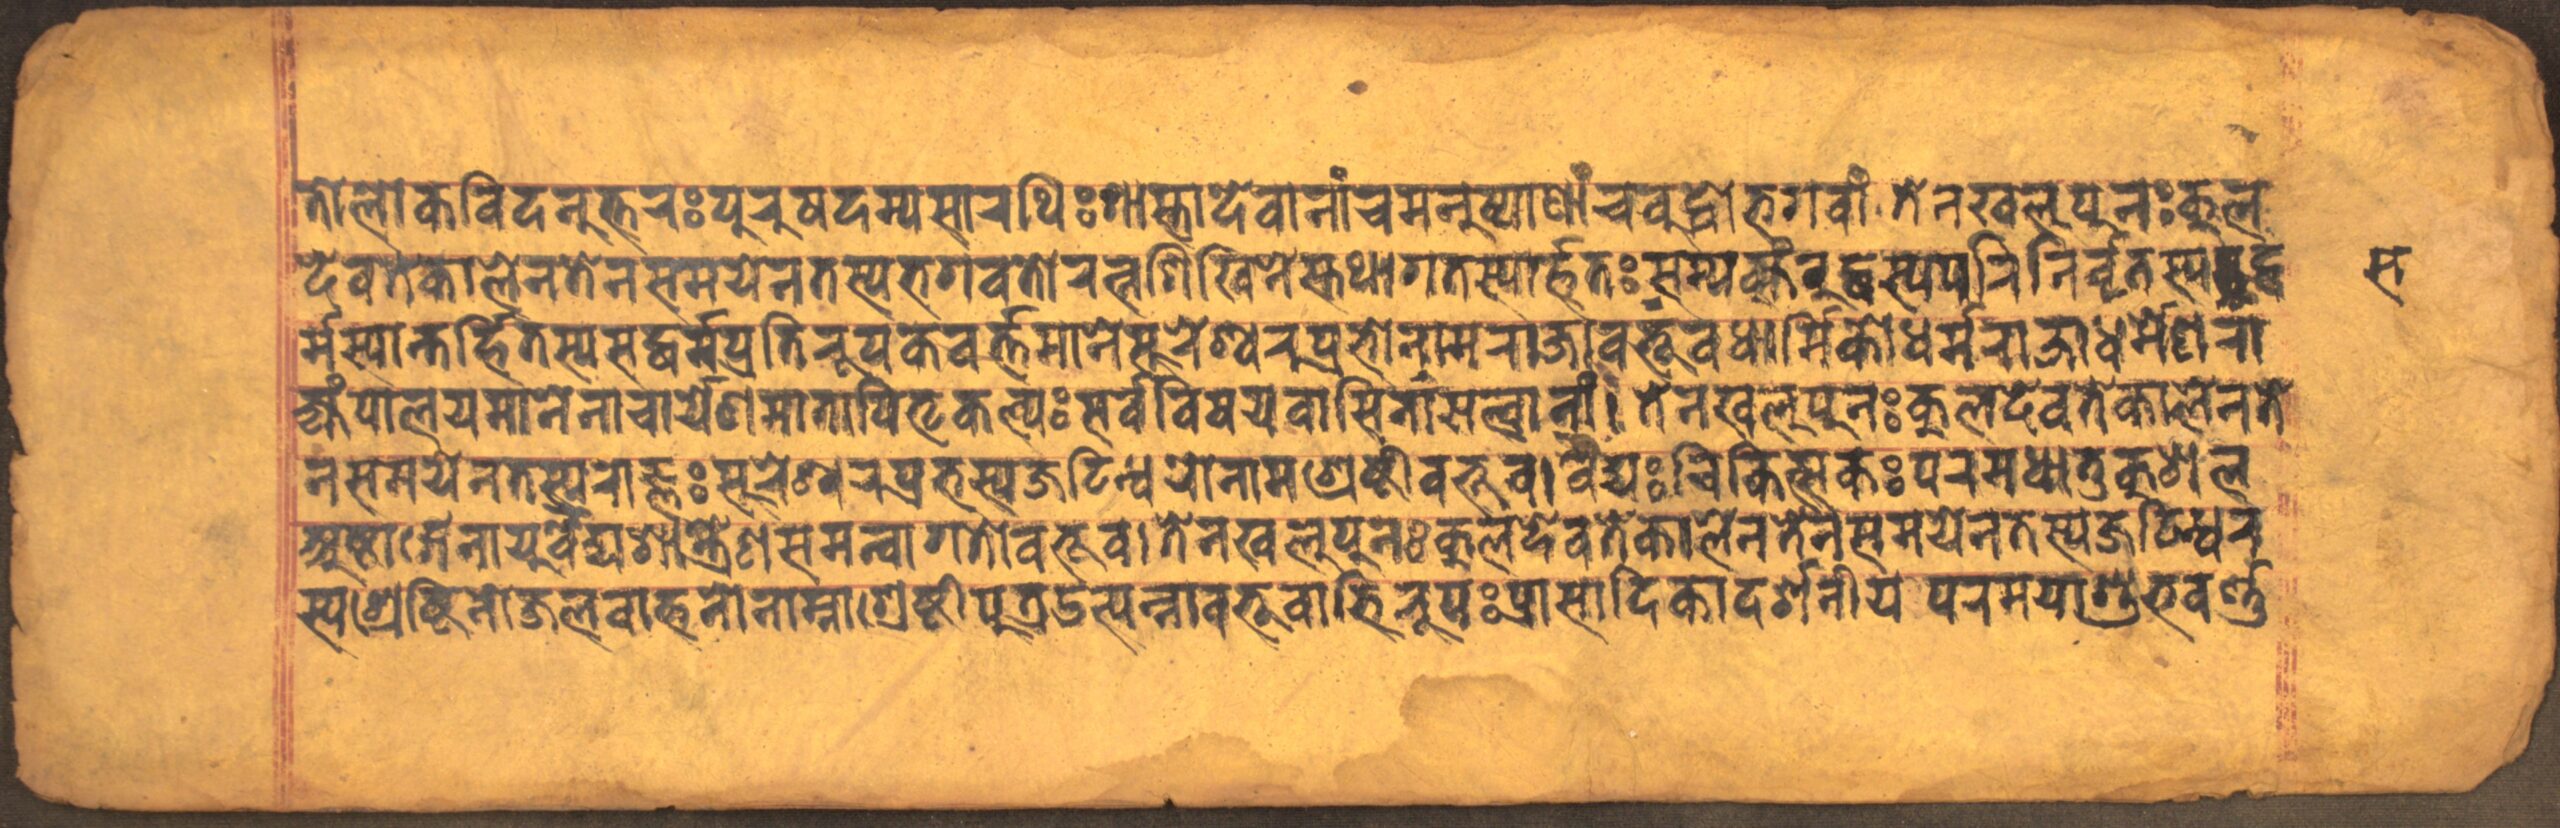 तोलोकविदनुत्तरःपुरुषदम्यसारथिःशास्त्रादेवानांचमनुष्याणांचबुद्धोभगवां।तेनखलुपुनःकुल
देवतेकालेनतेनसमयेनतस्यभगवतोरत्नशिखिनेस्तथागतस्यार्हतःसम्यक्संबुद्धस्यपरिनिर्वृतस्य द्ध स
र्मस्यान्तर्हितस्यसद्धर्मप्रतिरूपकवर्त्तमानेसुरेश्वरप्रभोनामराजाबभूवधार्मिकोधर्मराजाधर्मेणरा
ज्यंपालयमानेनाचार्येणमातापितृकल्पःसर्वविषयवासिनांसत्वानां।तेनखलुपुनःकुलदेवतेकालेनते
नसमयेनतस्यराज्ञःसुरेश्वरप्रभस्यजटिन्धरोनामश्रेष्ठीबभूव।वैद्यःचिकित्सकःपरमधातुकुशल
अष्टाङ्गेनायुर्वैद्यशास्त्रेणसमन्वागतोबभूव।तेनखलुपुनःकुलदेवतेकालेनतेनसमयेनतस्यजटिन्धर
स्यश्रेष्ठिनोजलवाहनोनाम्नाश्रेष्ठीपुत्रउत्पन्नाबभूवाभिरूपःप्रासादिकादर्शनीय परमयाशुभवर्ण्ण